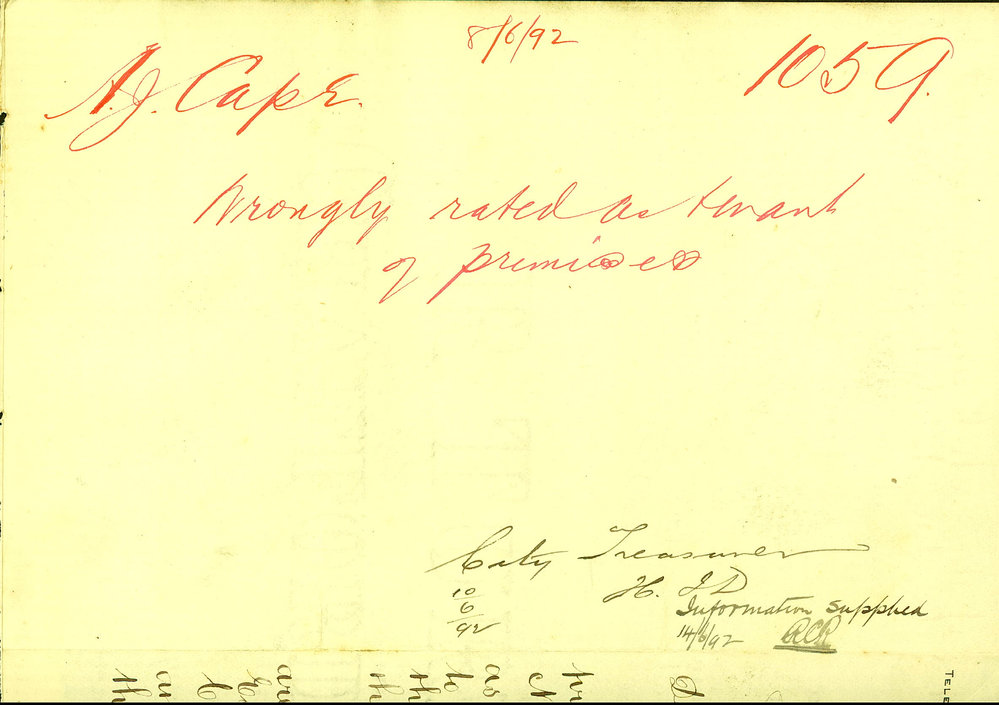 8/6/92
A.J. Cape. 1059.
Wrongly rated as tenant
of premises
City Treasurer
10
6
92
H. J D
Information supplied
14/6/92 RCR
TELE